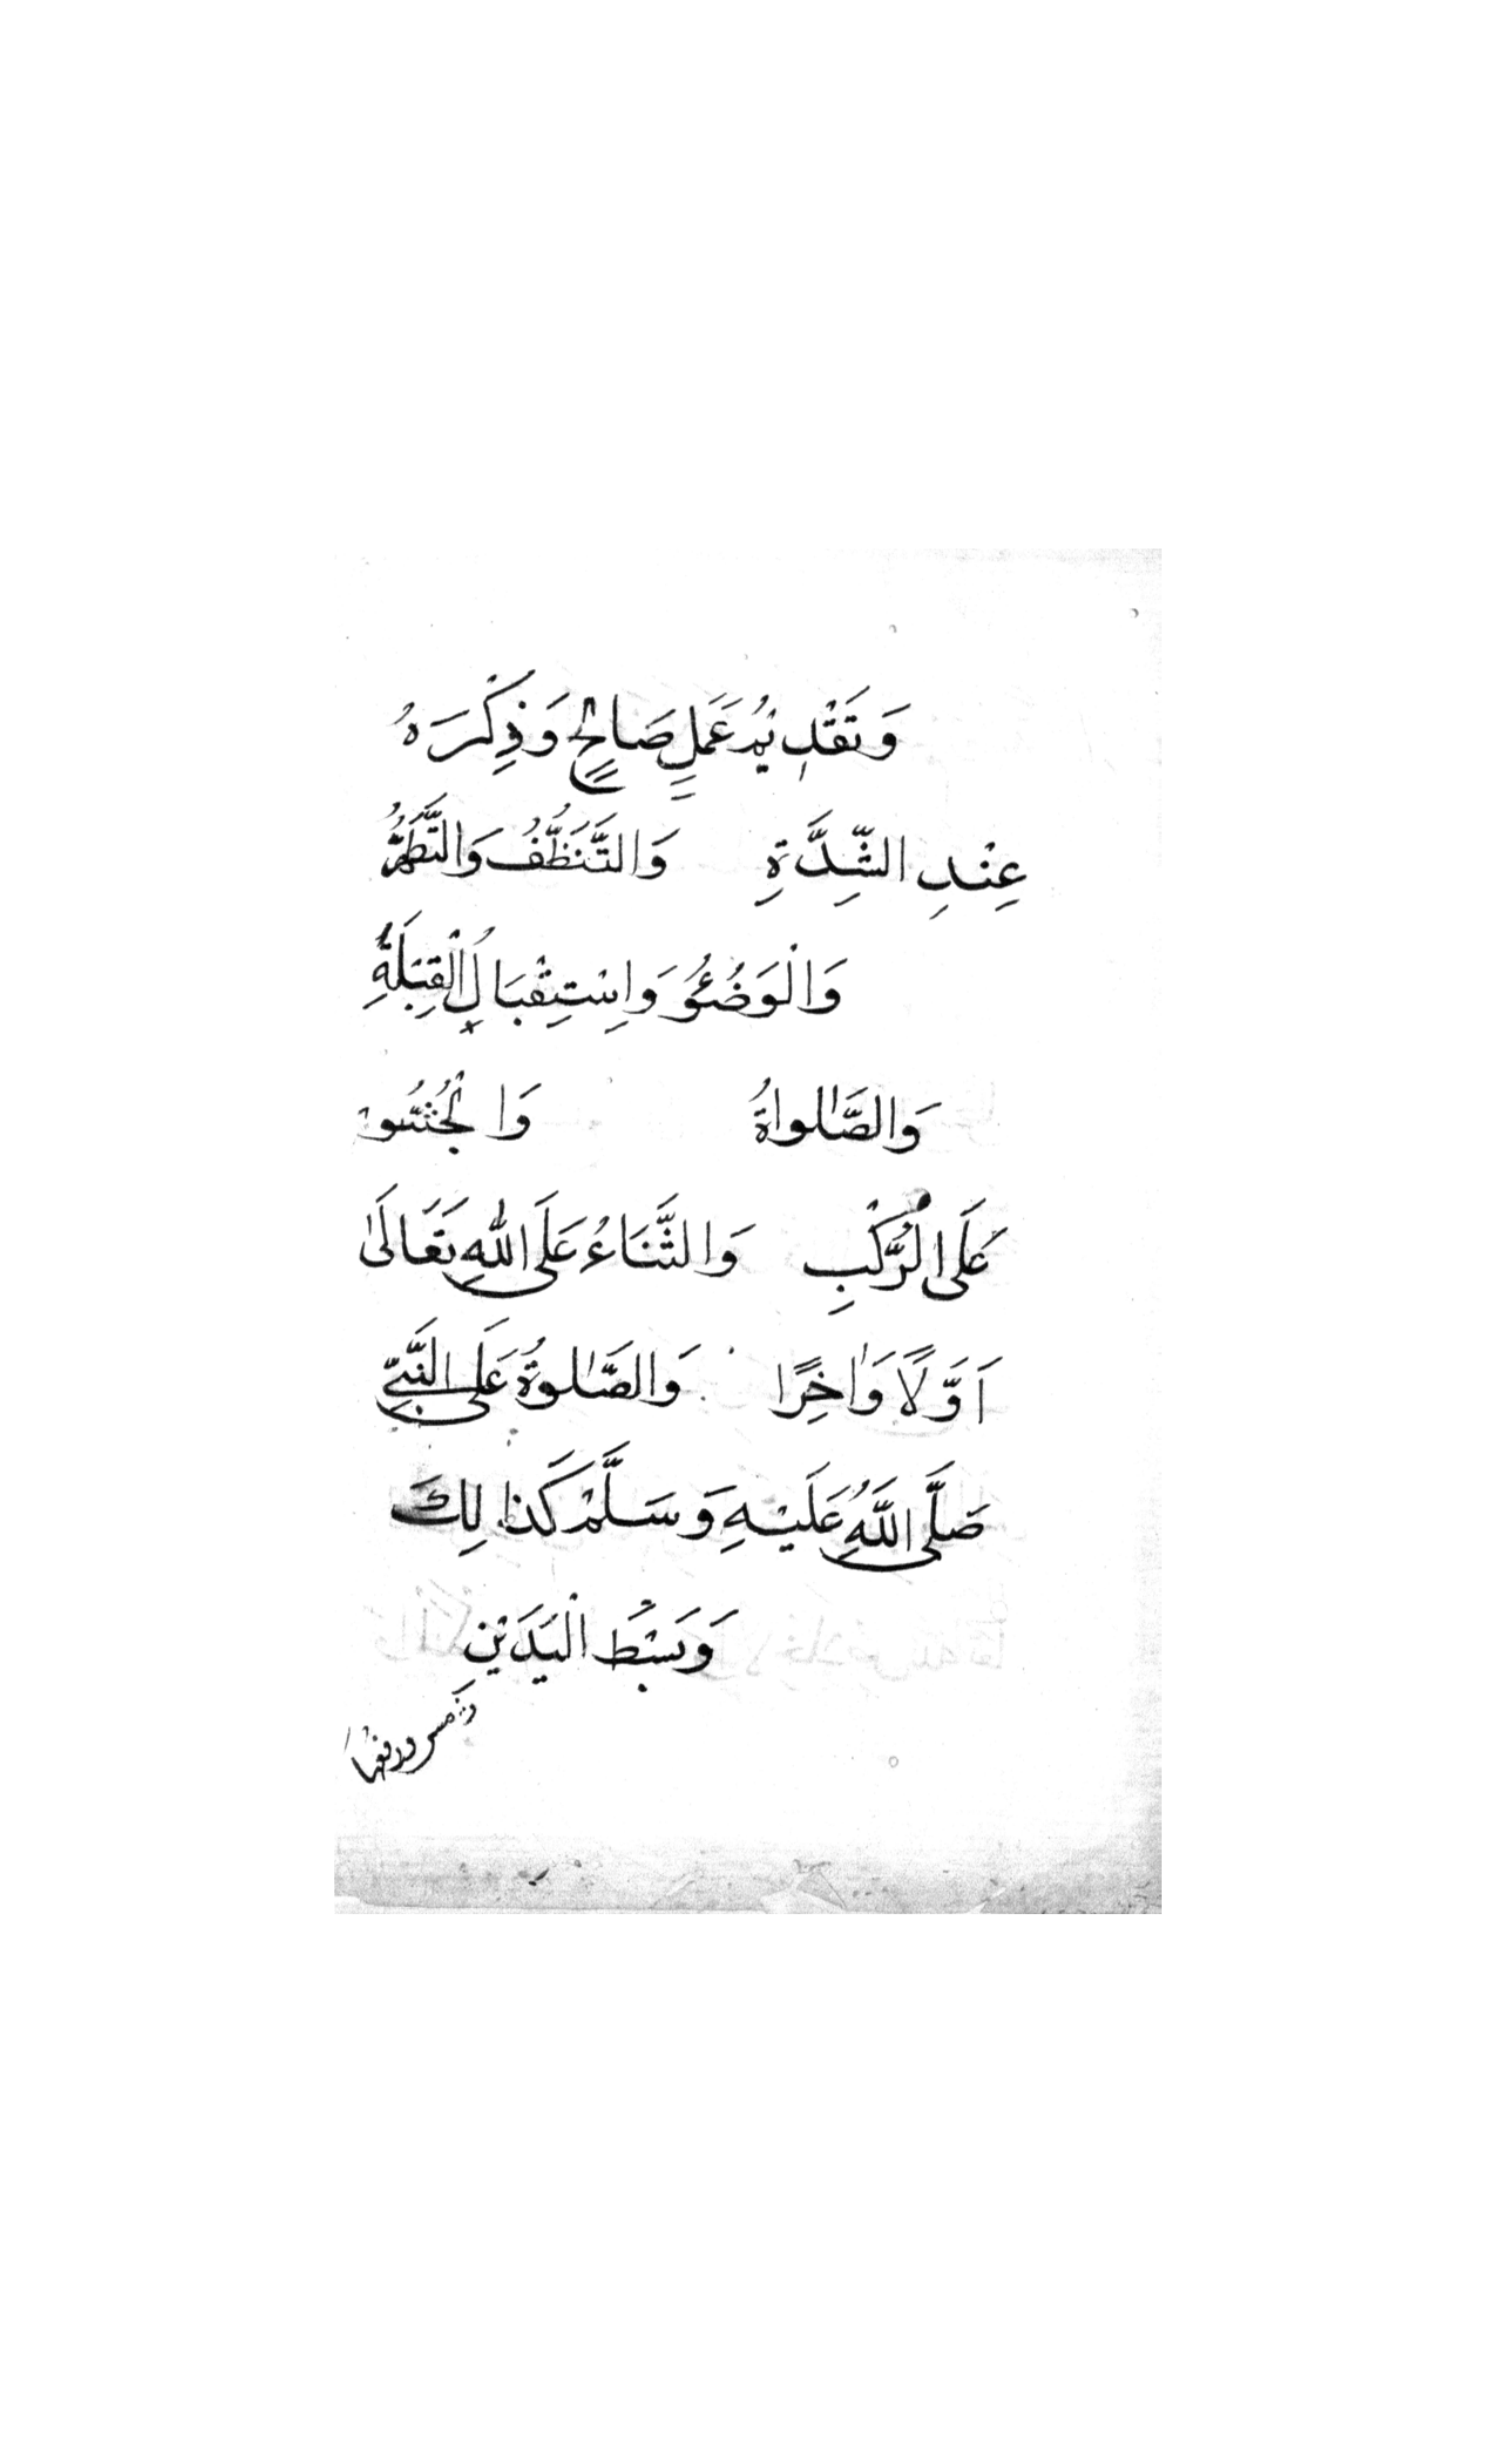 وَتَقْدِيْمُ عَمَلٍ صَالِحٍ وَذِكْرَهُ
عِنْدِ الشِّدَّةِ وَالتَّنَظُّفُ وَالتَّطَهُّرُ
وَالْوَضُئُوَ وَاِسْتِقْبَالِ الْقِبْلَةِ
وَالصَّلٰواةُ وَالْجُثُوْ
عَلَى الرُّكْبِ وَالثَّنَاءُ عَلَى اللّٰهِ تَعَالَىٰ
اَوَّلًا وَاٰخِرًا وَالصَّلٰوةُ عَلَى النَّبِيِّ
صَلَّى اللّٰهُ عَلَيْهِ وَسَلَّمْ كَذٰالِكَ
وَبَسْطَ الْيَدَيْنِ